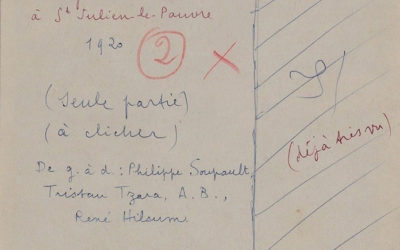 à St Julien-le-Pauvre
1920
2
(seule partie)
(à clicher)
De g. à d. : Philippe Soupault,
Tristan Tzara, A. B.,
René Hilsum
(déjà très vu)